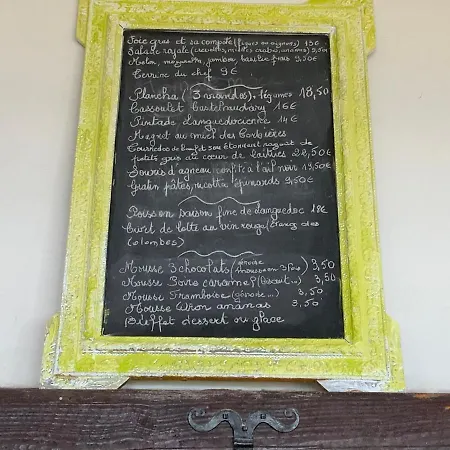 Foie gras et sa compotée (figues ou oignons) 15€
Salade royale (crevettes, miettes crabe, ananas) 9,50€
Melon, mozzarella, jambon, basilic frais 9,50€
Terrine du chef 9€
Plancha (3 viandes), légumes 18,50
Cassoulet Castelnaudary 16€
Pintade Languedocienne 14€
Magret au miel des Corbières
Tournedos de bœuf et son étonnant ragoût de
petits gris au cœur de laitues 22,50€
Souris d'agneau confite à l'ail noir 19,50€
Gratin pâtes, ricotta épinards 9,50€
Poisson saison fine de Languedoc 18€
Civet de lotte au vin rouge (étang des
colombes)
Mousse 3 chocolats (génoise) 3,50
Mousse Poire caramel (biscuit...) 3,50
Mousse Framboise (génoise...) 3,50
Mousse citron ananas 3,50
Buffet dessert ou glace